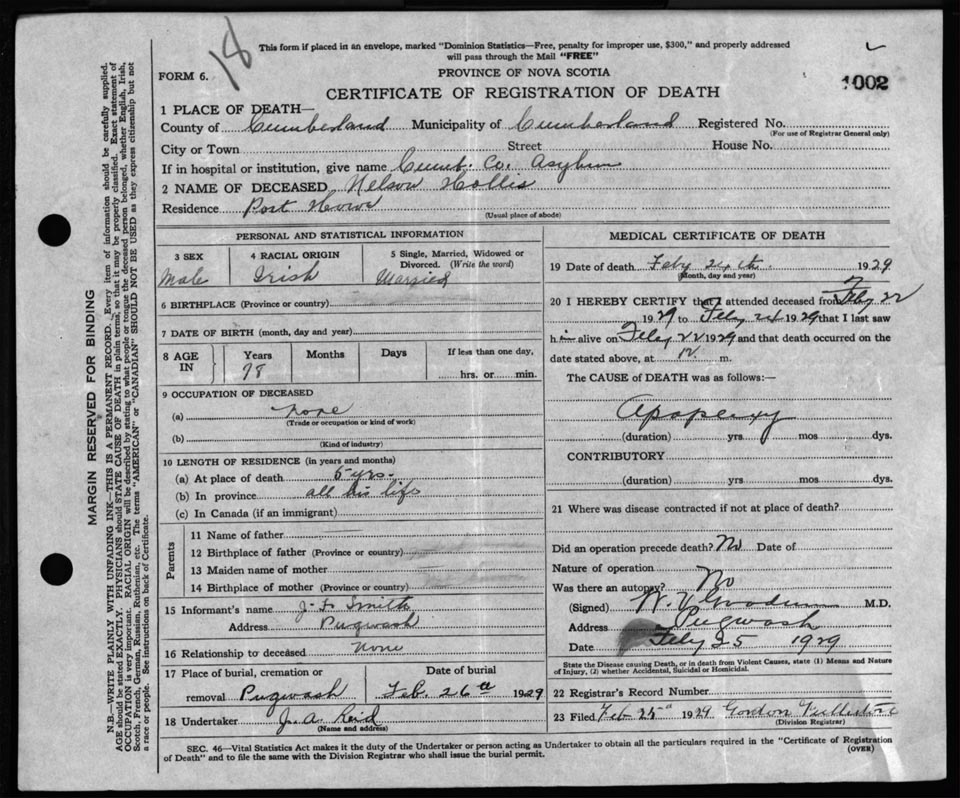 18
This form if placed in an envelope, marked "Dominion Statistics—Free, penalty for improper use, $300," and properly addressed
will pass through the Mail "FREE"
FORM 6.
PROVINCE OF NOVA SCOTIA
1002
CERTIFICATE OF REGISTRATION OF DEATH
1 PLACE OF DEATH—
County of Cumberland Municipality of Cumberland Registered No.
(For use of Registrar General only)
City or Town Street House No.
If in hospital or institution, give name Cumb. Co. Asylum
2 NAME OF DECEASED Nelson Hollis
Residence Port Howe
(Usual place of abode)
PERSONAL AND STATISTICAL INFORMATION
3 SEX
Male
4 RACIAL ORIGIN
Irish
5 Single, Married, Widowed or
Divorced. (Write the word)
Married
6 BIRTHPLACE (Province or country)
7 DATE OF BIRTH (month, day and year)
8 AGE IN
Years Months Days If less than one day,
78 hrs. or min.
9 OCCUPATION OF DECEASED
(a) none
(Trade or occupation or kind of work)
(b)
(Kind of industry)
10 LENGTH OF RESIDENCE (in years and months)
(a) At place of death 5 yrs.
(b) In province all his life
(c) In Canada (if an immigrant)
Parents
11 Name of father
12 Birthplace of father (Province or country)
13 Maiden name of mother
14 Birthplace of mother (Province or country)
15 Informant's name J. F. Smith
Address Pugwash
16 Relationship to deceased None
17 Place of burial, cremation or Date of burial
removal Pugwash Feb. 26th 1929
18 Undertaker J. A. Reid
(Name and address)
MEDICAL CERTIFICATE OF DEATH
19 Date of death Feby 24th. 1929
(Month, day and year)
20 I HEREBY CERTIFY that I attended deceased from Feby 22
1929 to Feby 24 1929 that I last saw
him alive on Feby 22 1929 and that death occurred on the
date stated above, at 12 m.
The CAUSE of DEATH was as follows:—
Apoplexy
(duration) yrs. mos dys.
CONTRIBUTORY
(duration) yrs. mos. dys.
21 Where was disease contracted if not at place of death?
Did an operation precede death? No Date of
Nature of operation
Was there an autopsy? No
(Signed) W. V. M.D.
Address Pugwash
Date Feby 25 1929
State the Disease causing Death, or in death from Violent Causes, state (1) Means and Nature
of Injury, (2) whether Accidental, Suicidal or Homicidal.
22 Registrar's Record Number
23 Filed Feb 25th 1929 Gordon
(Division Registrar)
SEC. 46—Vital Statistics Act makes it the duty of the Undertaker or person acting as Undertaker to obtain all the particulars required in the "Certificate of Registration
of Death" and to file the same with the Division Registrar who shall issue the burial permit.
(OVER)
MARGIN RESERVED FOR BINDING
N.B.—WRITE PLAINLY WITH UNFADING INK—THIS IS A PERMANENT RECORD. Every item of information should be carefully supplied.
AGE should be stated EXACTLY. PHYSICIANS should STATE CAUSE OF DEATH in plain terms, so that it may be properly classified. Exact statement of
OCCUPATION is very important. RACIAL ORIGIN will be described by stating to what people or tongue the deceased person belonged, whether English, Irish,
Scotch, French, German, Russian, Ruthenian, etc. The terms "AMERICAN" or "CANADIAN" SHOULD NOT BE USED as they express citizenship but not
a race or people. See instructions on back of Certificate.